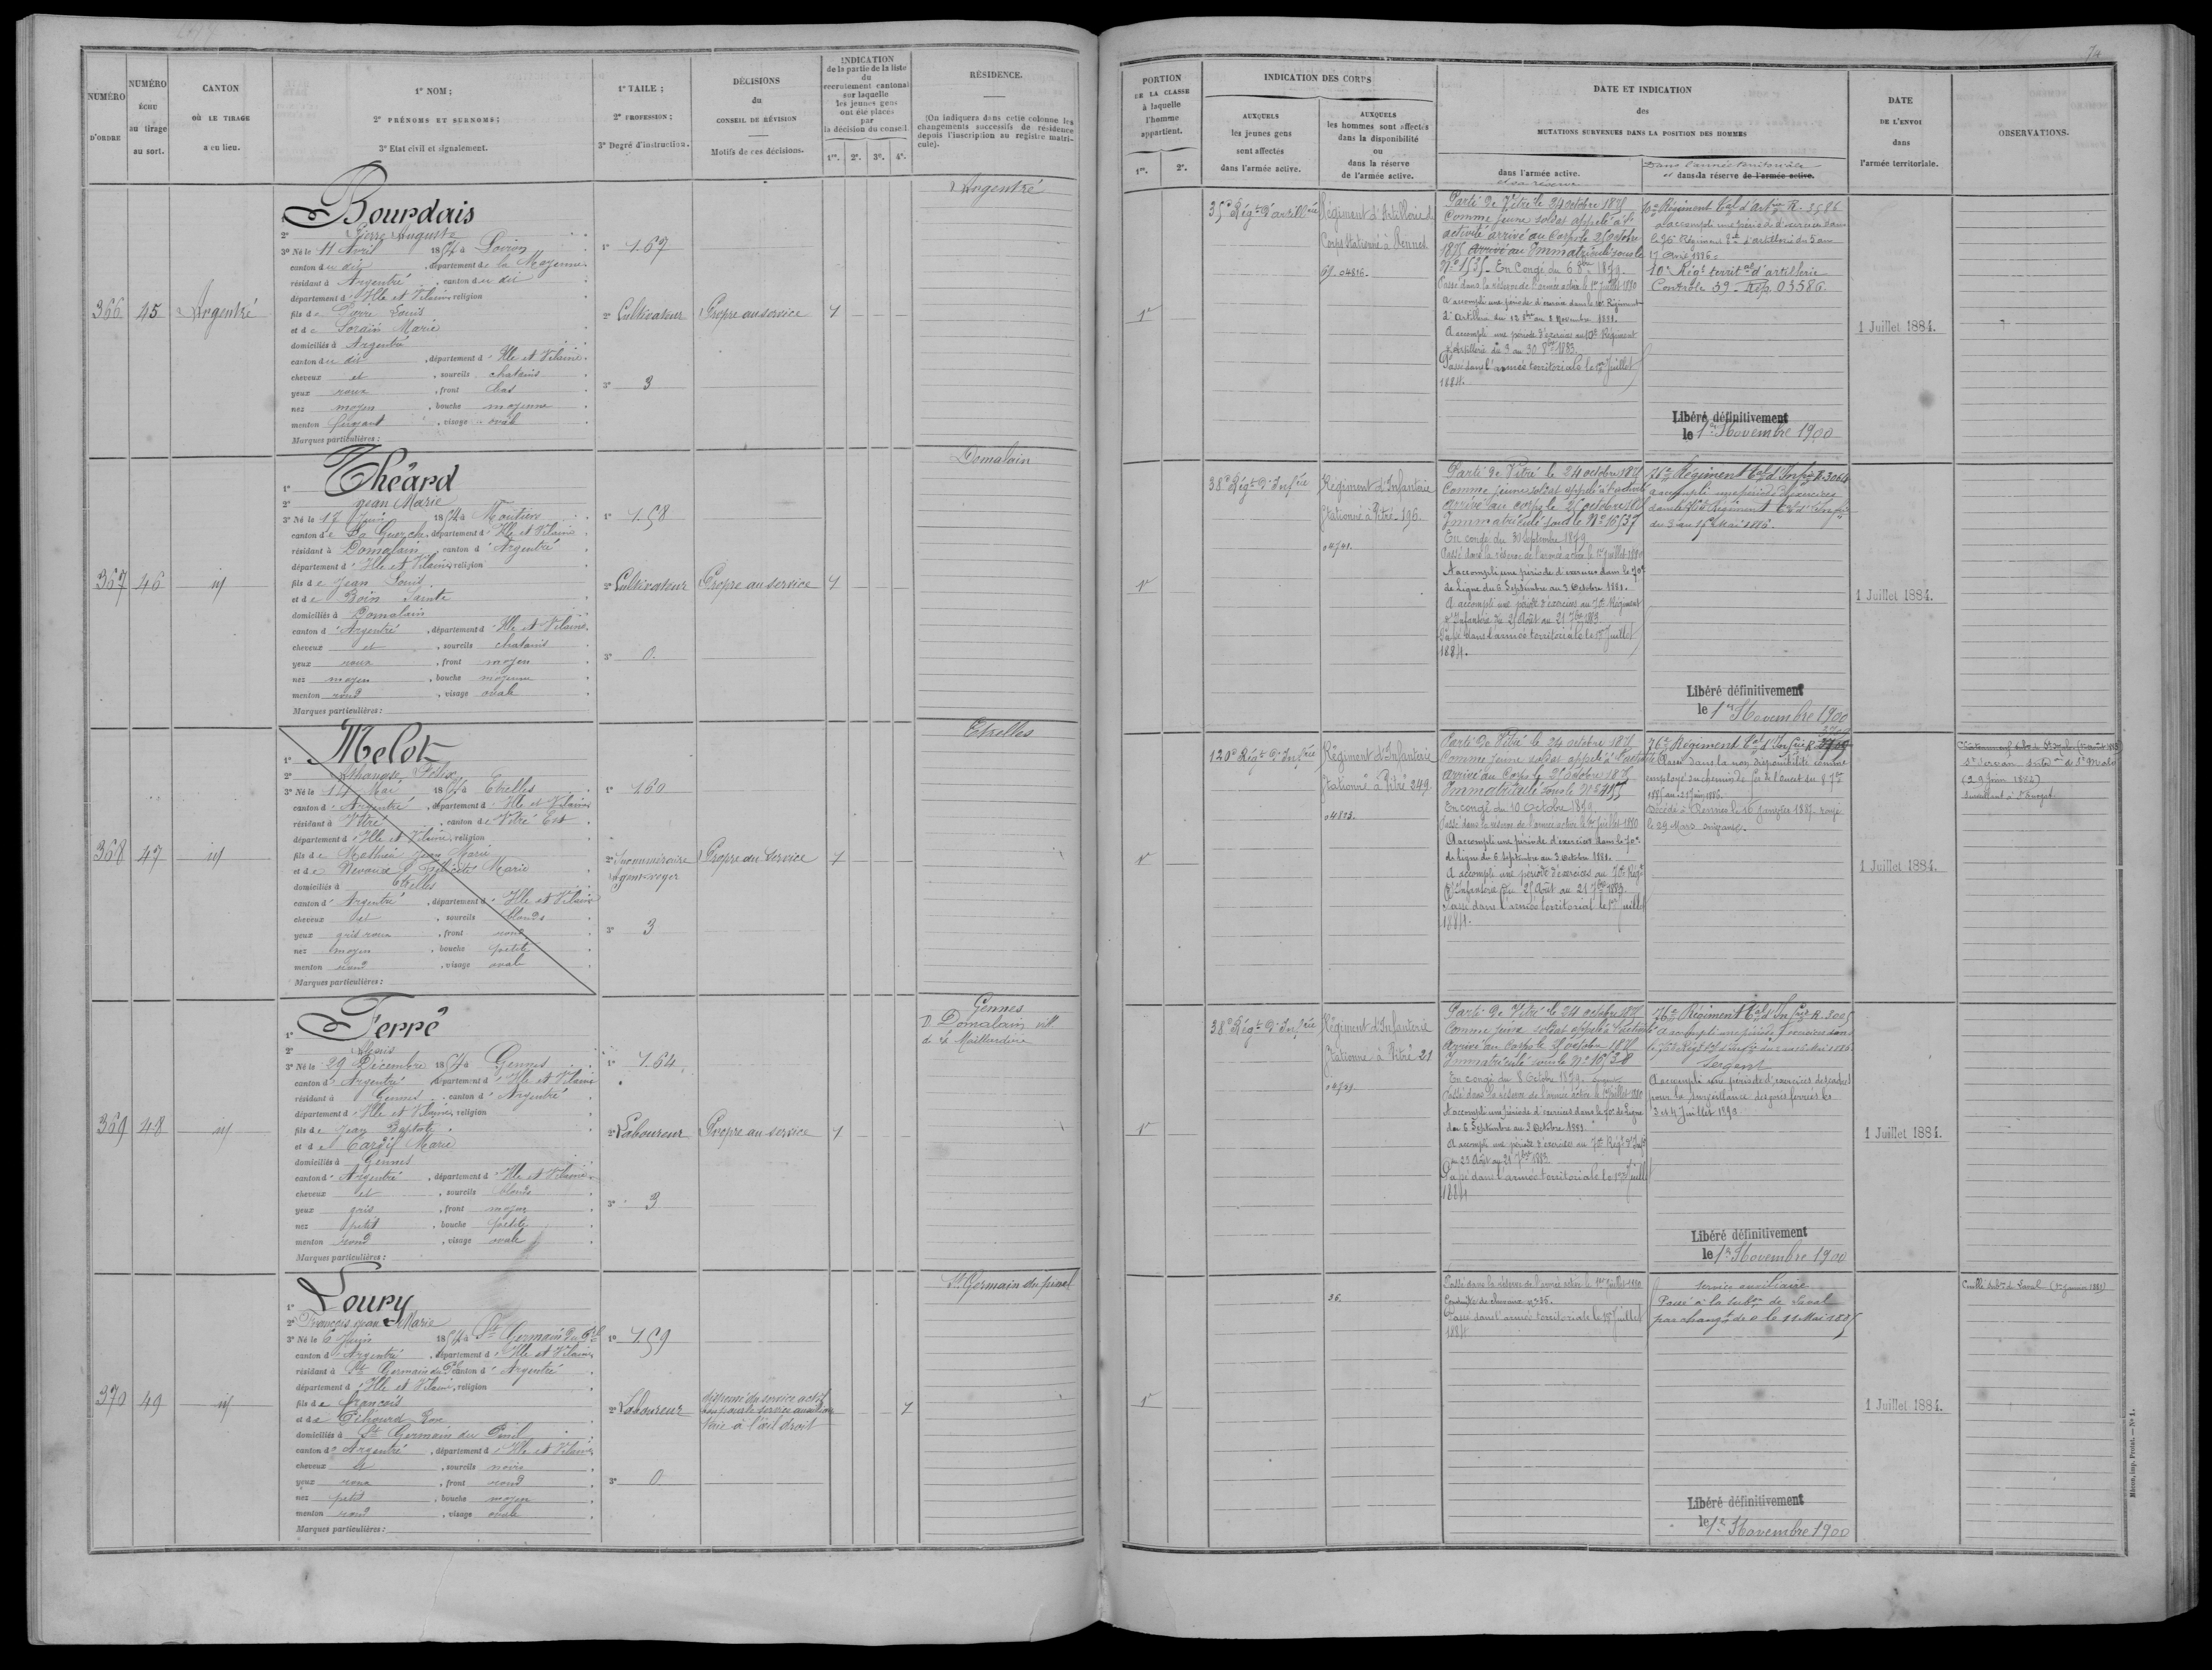 74
NUMÉRO D'ORDRE
NUMÉRO ÉCHU au tirage au sort.
CANTON OÙ LE TIRAGE a eu lieu.
1° NOM ;
2° PRÉNOMS ET SURNOMS ;
3° Etat civil et signalement.
1° TAILE ;
2° PROFESSION ;
3° Degré d'instruction.
DÉCISIONS du CONSEIL DE RÉVISION
Motifs de ces décisions.
INDICATION de la partie de la liste du recrutement cantonal sur laquelle les jeunes gens ont été placés par la décision du conseil
1re. 2e. 3e. 4e.
RÉSIDENCE.
(On indiquera dans cette colonne les changements successifs de résidence depuis l'inscription au registre matricule).
PORTION DE LA CLASSE à laquelle l'homme appartient.
1re. 2e.
INDICATION DES CORPS
AUXQUELS les jeunes gens sont affectés dans l'armée active.
AUXQUELS les hommes sont affectés dans la disponibilité ou dans la réserve de l'armée active.
DATE ET INDICATION des MUTATIONS SURVENUES DANS LA POSITION DES HOMMES
dans l'armée active.
et sa réserve
Dans l'armée territoriale
et dans la réserve de l'armée active.
DATE DE L'ENVOI dans l'armée territoriale.
OBSERVATIONS.
366
45
Argentré
Bourdais
2° Pierre Auguste
3° Né le 11 Avril 1854 à
canton du dit, département de la Mayenne
résidant à Argentré, canton du dit
département d'Ille et Vilaine, religion
fils de Pierre Louis
et de Lorain Marie
domiciliés à Argentré
canton du dit, département d'Ille et Vilaine.
cheveux et, sourcils chatains
yeux roux, front bas
nez moyen, bouche moyenne
menton fuyant, visage ovale
Marques particulières :
1° 1.67
2° Cultivateur
3° 3
Propre au service
1
Argentré
1re
35e Régt d'artillerie
Régiment d'Artillerie
Corps Stationné à Rennes
04816.
Parti de Vitré le 24 octobre 1875
Comme jeune soldat appelé à l'
activité arrivé au Corps le 25 octobre
1875 arrivé au Immatriculé sous le
No 1535 - En Congé du 6 8bre 1879.
Passé dans la réserve de l'armée active le 1er Juillet 1880
A accompli une période d'exercice dans le 10e Régiment
d'Artillerie du 12 8bre au 8 Novembre 1881.
A accompli une période d'exercice au 10e Régiment
d'Artillerie du 3 au 30 8bre 1883.
Passé dans l'armée territoriale le 1er Juillet
1884.
10e Régiment Cal d'Artie R. 3586
a accompli une période d'exercices dans
le 10e Régiment d'artillerie du 5 au
17 Avril 1886.
10e Régt territal d'artillerie
Contrôle 39 - Rép. 03586.
Libéré définitivement
le 1er Novembre 1900
1 Juillet 1884.
367
46
id
Théard
1°
2° Jean Marie
3° Né le 17 Juin 1854 à Moutiers
canton de La Guerche, département d'Ille et Vilaine
résidant à Domalain, canton d'Argentré
département d'Ille et Vilaine, religion
fils de Jean Louis
et de Boin Sainte
domiciliés à Domalain
canton d'Argentré, département d'Ille et Vilaine.
cheveux et, sourcils chatains
yeux roux, front moyen
nez moyen, bouche moyenne
menton rond, visage ovale
Marques particulières :
1° 1.58
2° Cultivateur
3° 0.
Propre au service
1
Domalain
1re
38e Régt d'Infrie
Régiment d'Infanterie
Stationné à Vitré 195.
04741.
Parti de Vitré le 24 octobre 1875
Comme jeune soldat appelé à l'activité
arrivé au corps le 25 octobre 1875
Immatriculé sous le No 16537
En congé du 30 Septembre 1879
Passé dans la réserve de l'armée active le 1er Juillet 1880
A accompli une période d'exercices dans le 70e
de Ligne du 6 Septembre au 3 Octobre 1881.
A accompli une période d'exercices au 70e Régiment
d'Infanterie du 25 Août au 21 7bre 1883
Passé dans l'armée territoriale le 1er Juillet
1884.
76e Régiment Cal d'Infie R. 3064
a accompli une période d'exercices
dans le 76e Régiment Cal d'Infie
du 3 au 15 Mai 1886.
Libéré définitivement
le 1er Novembre 1900
1 Juillet 1884.
368
47
id
Melot
1°
2° Athanase Félix
3° Né le 14 Mai 1854 à Etrelles
canton d'Argentré, département d'Ille et Vilaine
résidant à Vitré, canton de Vitré Est
département d'Ille et Vilaine, religion
fils de Mathieu Jean Marie
et de Félicité Marie
domiciliés à Etrelles
canton d'Argentré, département d'Ille et Vilaine
cheveux et, sourcils blonds
yeux gris roux, front rond
nez moyen, bouche petite
menton rond, visage ovale
Marques particulières :
1° 1.60
2° Surnuméraire
agent voyer
3° 3
Propre au Service
1
Etrelles
1re
120e Régt d'Infrie
Régiment d'Infanterie
Stationné à Vitré 249.
04803.
Parti de Vitré le 24 octobre 1875
Comme jeune soldat appelé à l'activité
arrivé au Corps le 25 octobre 1875
Immatriculé sous le No 5455
En congé du 10 Octobre 1879
Passé dans la réserve de l'armée active le 1er Juillet 1880
A accompli une période d'exercices dans le 70e
de Ligne du 6 Septembre au 3 Octobre 1881.
A accompli une période d'exercices au 70e Régt
d'Infanterie du 25 Août au 21 7bre 1883.
Passé dans l'armée territorial le 1er Juillet
1884.
76e Régiment Cal d'Infie R
Passé dans la non disponibilité comme
employé au chemin de fer de l'Ouest du
Décédé à Rennes le 16 Janvier 1887. rayé
le 29 Mars suivant.
1 Juillet 1884.
St Servan de St Malo
(29 Juin 1882)
369
48
id
Ferré
1°
2° Denis
3° Né le 29 Décembre 1854 à Gennes
canton d'Argentré, département d'Ille et Vilaine
résidant à Gennes, canton d'Argentré
département d'Ille et Vilaine, religion
fils de Jean Baptiste
et de Marie
domiciliés à Gennes
canton d'Argentré, département d'Ille et Vilaine.
cheveux et, sourcils blonds
yeux gris, front moyen
nez petit, bouche petite
menton rond, visage ovale
Marques particulières :
1° 1.64
2° Laboureur
3° 3
Propre au service
1
Gennes
D Domalain vill.
de la
1re
38e Régt d'Infrie
Régiment d'Infanterie
Stationné à Vitré 21
Parti de Vitré le 24 octobre 1875
Comme jeune soldat appelé à l'activité
arrivé au Corps le 25 octobre 1875
Immatriculé sous le No 16538
En congé du 8 Octobre 1879.
Passé dans la réserve de l'armée active le 1er Juillet 1880
A accompli une période d'exercices dans le 70e de Ligne
du 6 Septembre au 3 Octobre 1881
A accompli une période d'exercices au 70e Régt d'Infie
du 25 Août au 21 7bre 1883
Passé dans l'armée territoriale le 1er Juillet
1884
76e Régiment Cal d'Infrie R. 3005
A accompli une période d'exercices dans
le 76e Régt Cal d'Infie du 3 au 15 Mai 1886.
Sergent
A accompli une période d'exercices de cadres
pour la surveillance des voies ferrées les
3 et 4 Juillet 1890
Libéré définitivement
le 1er Novembre 1900
1 Juillet 1884.
370
49
id
Loury
1°
2° François Jean Marie
3° Né le 6 Juin 1854 à St Germain du Pel
canton d'Argentré, département d'Ille et Vilaine
résidant à St Germain du Pel canton d'Argentré
département d'Ille et Vilaine, religion
fils de François
et de Gihourd Rose
domiciliés à St Germain du Pinel
canton d'Argentré, département d'Ille et Vilaine
cheveux et, sourcils noirs
yeux roux, front rond
nez petit, bouche moyen
menton rond, visage ovale
Marques particulières :
1° 1.59
2° Laboureur
3° 0
dispensé du service actif
bon pour le service auxiliaire
taie à l'œil droit
1
St Germain du pinel
1
36.
Passé dans la réserve de l'armée active le 1er Juillet 1880
Conduite de chevaux no 35.
Passé dans l'armée territoriale le 1er Juillet
1884
Service auxiliaire
Passé à la subon de Laval
par changt de D le 11 Mai 1885
Libéré définitivement
le 1er Novembre 1900
1 Juillet 1884.
Cuillé subon de Laval (1er Janvier 1881)
Mâcon, imp. Protat. — No 1.